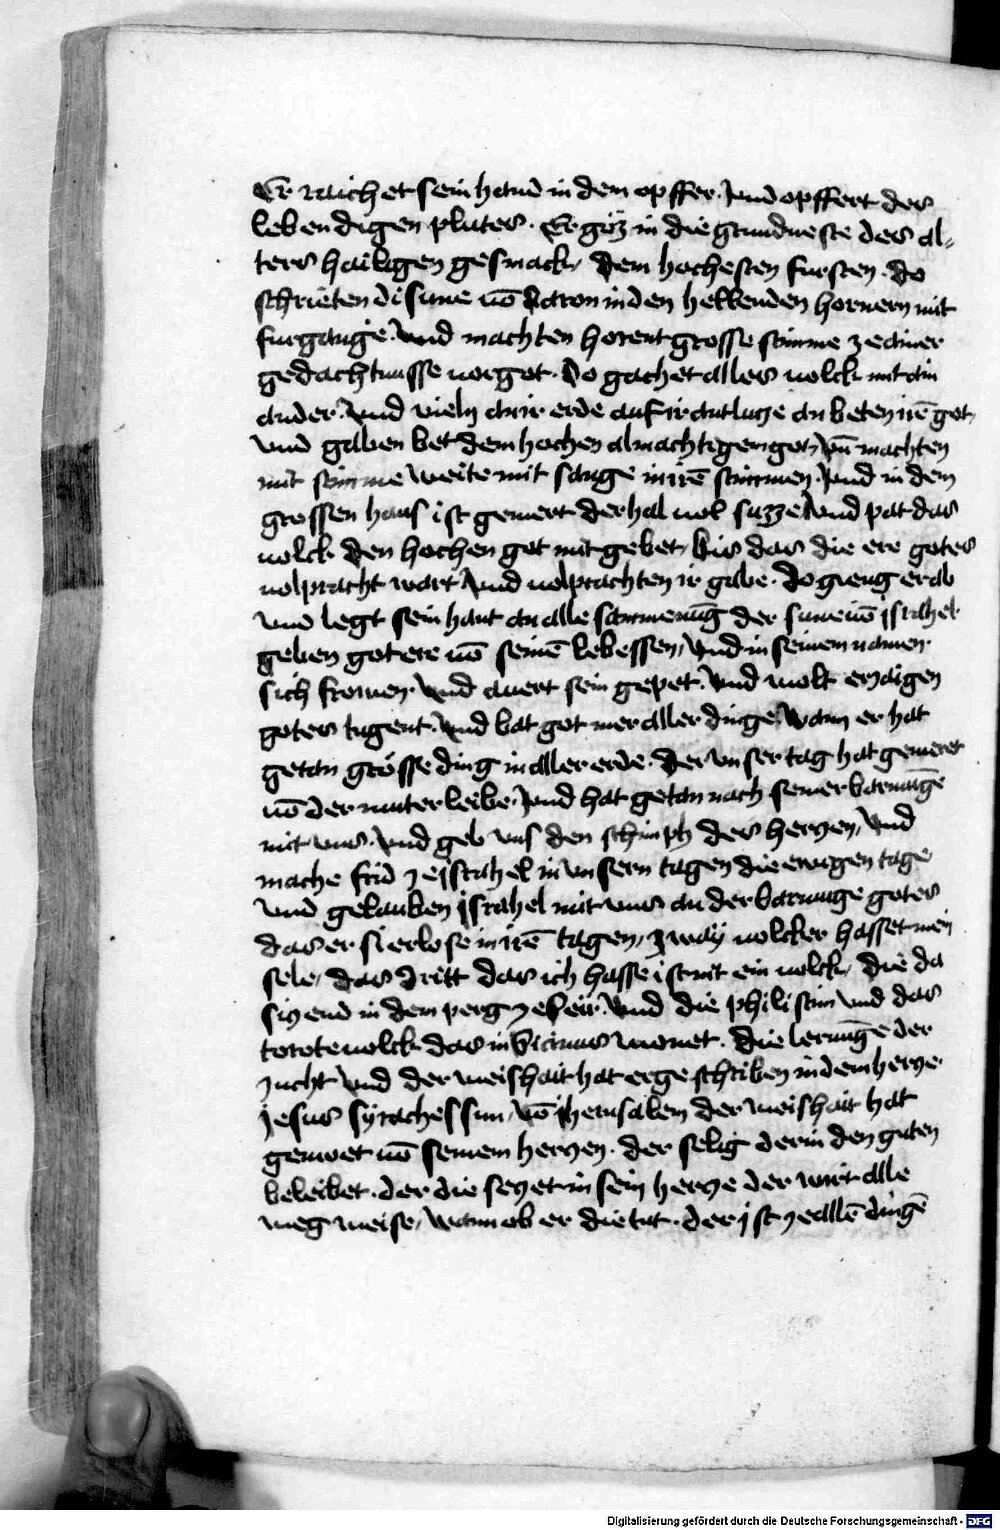 Er raichet sein hand in dem opffer. Vnd opffert des
lebendigen plutes. Er goz in die gruntueste des al-
ters hailigen gesmack, dem hochesten fursten. do
schrieten di sune uō Aaron in den hellenden hornern mit
furgange. Vnd machten horent grosse stimme ze ainer
gedachtnusse uor got. Do gachet alles uolck mit ain
ander. Vnd vieln an ir erde auf ir antlucze an beten irē got,
vnd gaben bet dem hochen almachtigem got, Vn̄ machten
mit stimme weite mit sange in irē stimmen. Vnd in dem
grossen haus ist gemert der hal uol suzze. Vnd pat das
uolck den hochen got mit gebet, bis das die ere gotes
uolpracht wart. Vnd uolprachten ir gabe. Do gieng er ab
vnd legt sein hant an alle sammenūg der sune uō jsrahel
geben got ere uō seinē lebessen, Vnd in seinem namen
sich frowen. Vnd auert sein gepet. Vnd wolt erzaigen
gotes tugent. Vnd bat got mer aller dinge. Wann er hat
getan grosse ding in aller erde. der vnser tag hat gemeret
uō der muter leibe. Vnd hat getan nach seiner barmūge
mit vns. Vnd geb vns den schimph des herczen, Vnd
mache frid ze jsrahel in vnsern tagen die ewigen tage
vnd gelauben jsrahel mit vns an der barmunge gotes
das er si erlose in irē tagen, zway uolcker hasset mein
sele, das dritt das ich hasse ist nit ein uolck, die da
siczend in dem perg zeseir. Vnd die philistim Vnd das
torote uolck das in Sicimis wonet. die lerunge der
zucht Vnd der weishait hat er geschriben in dem hercze
Jesus Syraches sun, uō jherusalem der weishait hat
geniwet uō seinem herczen. der selig der in den guten
beleibet. der die seczet in sein hercze der wirt alle
weg weise, Wann ob er die tut. der jst ze allē dingē
Digitalisierung gefördert durch die Deutsche Forschungsgemeinschaft - DFG